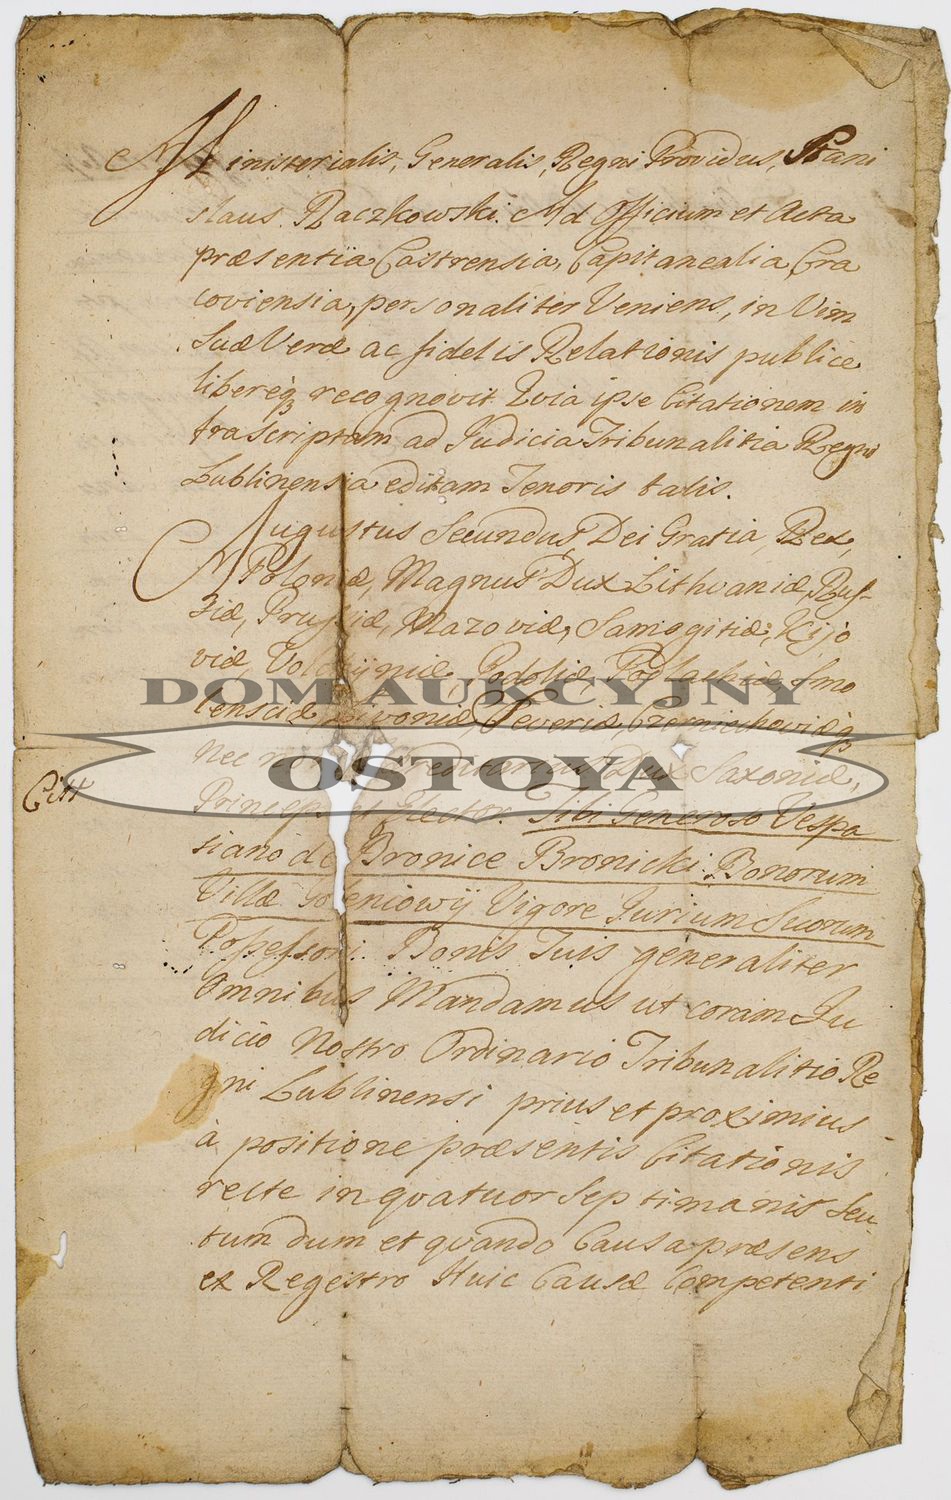 Ministerialis, Generalis, Regni Providus, Stani
slaus Raczkowski. Ad Officium et Acta
præsentia Castrensia, Capitanealia, Cra
coviensia, personaliter Veniens, in Vim
Suæ Veræ ac fidelis Relationis publice
libereq recognovit Qvia ipse Citationem in
fra Scriptam ad Judicia Tribunalitia Regni
Lublinensia editam Tenoris talis.
Augustus Secundus Dei Gratia, Rex,
Poloniæ, Magnus Dux Lithvaniæ, Rus-
siæ, Prussiæ, Mazoviæ, Samogitiæ, Kijo
viæ, Volhijniæ, Podoliæ, Podlachiæ Smo
lensciæ, Livoniæ, Severiæ, Czerniechoviæq
DOM AUKCYJNY
nec non Hæreditarius Dux Saxoniæ,
OSTOYA
Citt
Princeps et Elector. Tibi Generoso Vespa
siano de Bronice Bronicki Bonorum
Villæ Goleniowij Vigore Jurium Suorum
Possessori. Bonis Tuis generaliter
Omnibus Mandamus ut coram Ju
dicio Nostro Ordinario Tribunalitio Re
gni Lublinensi prius et proximius
à positione præsentis Citationis
recte in qvatuor Septimanis Seu
tum dum et qvando Causa præsens
ex Regestro Huic Causæ Competenti